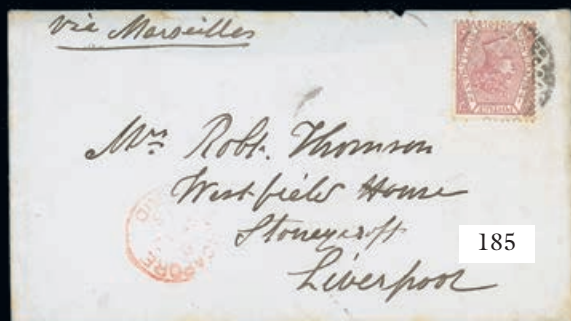 via Marseilles
Mrs Robt. Thomson
Westfield House
Stoneycroft
Liverpool
185
PAID